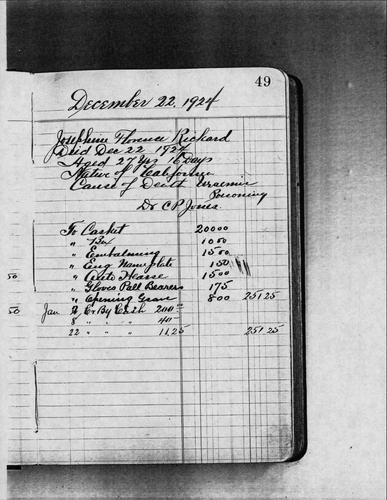 49
December 22, 1924
Josephine Florence Rickard
Died Dec 22 1924
Aged 27 Yrs 16 Days
Native of California
Cause of Death Uraemic
Poisoning
Dr. C P Jones.
To Casket 20000
" Box 1000
" Embalming 1500
" Eng. Name plate 150
50 " Auto Hearse 1500
" Gloves Pall Bearers 175
" Opening Grave 800 25125
50 Jan Cr By Cash 200
8 " " " 40
22 " " " 11.25 25125